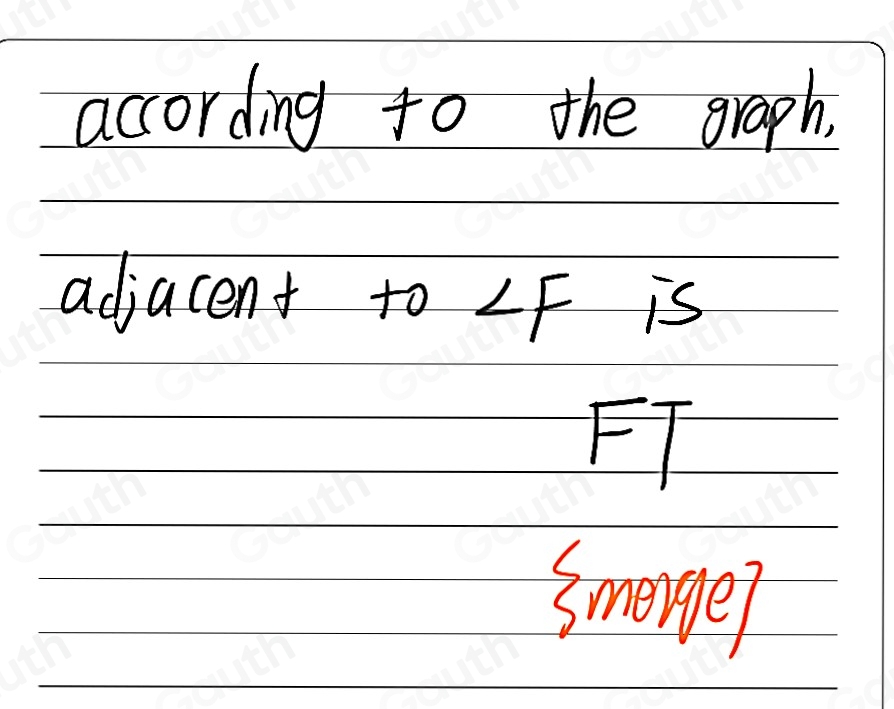 according to the graph,
adjacent to ∠F is
FT
{merge}